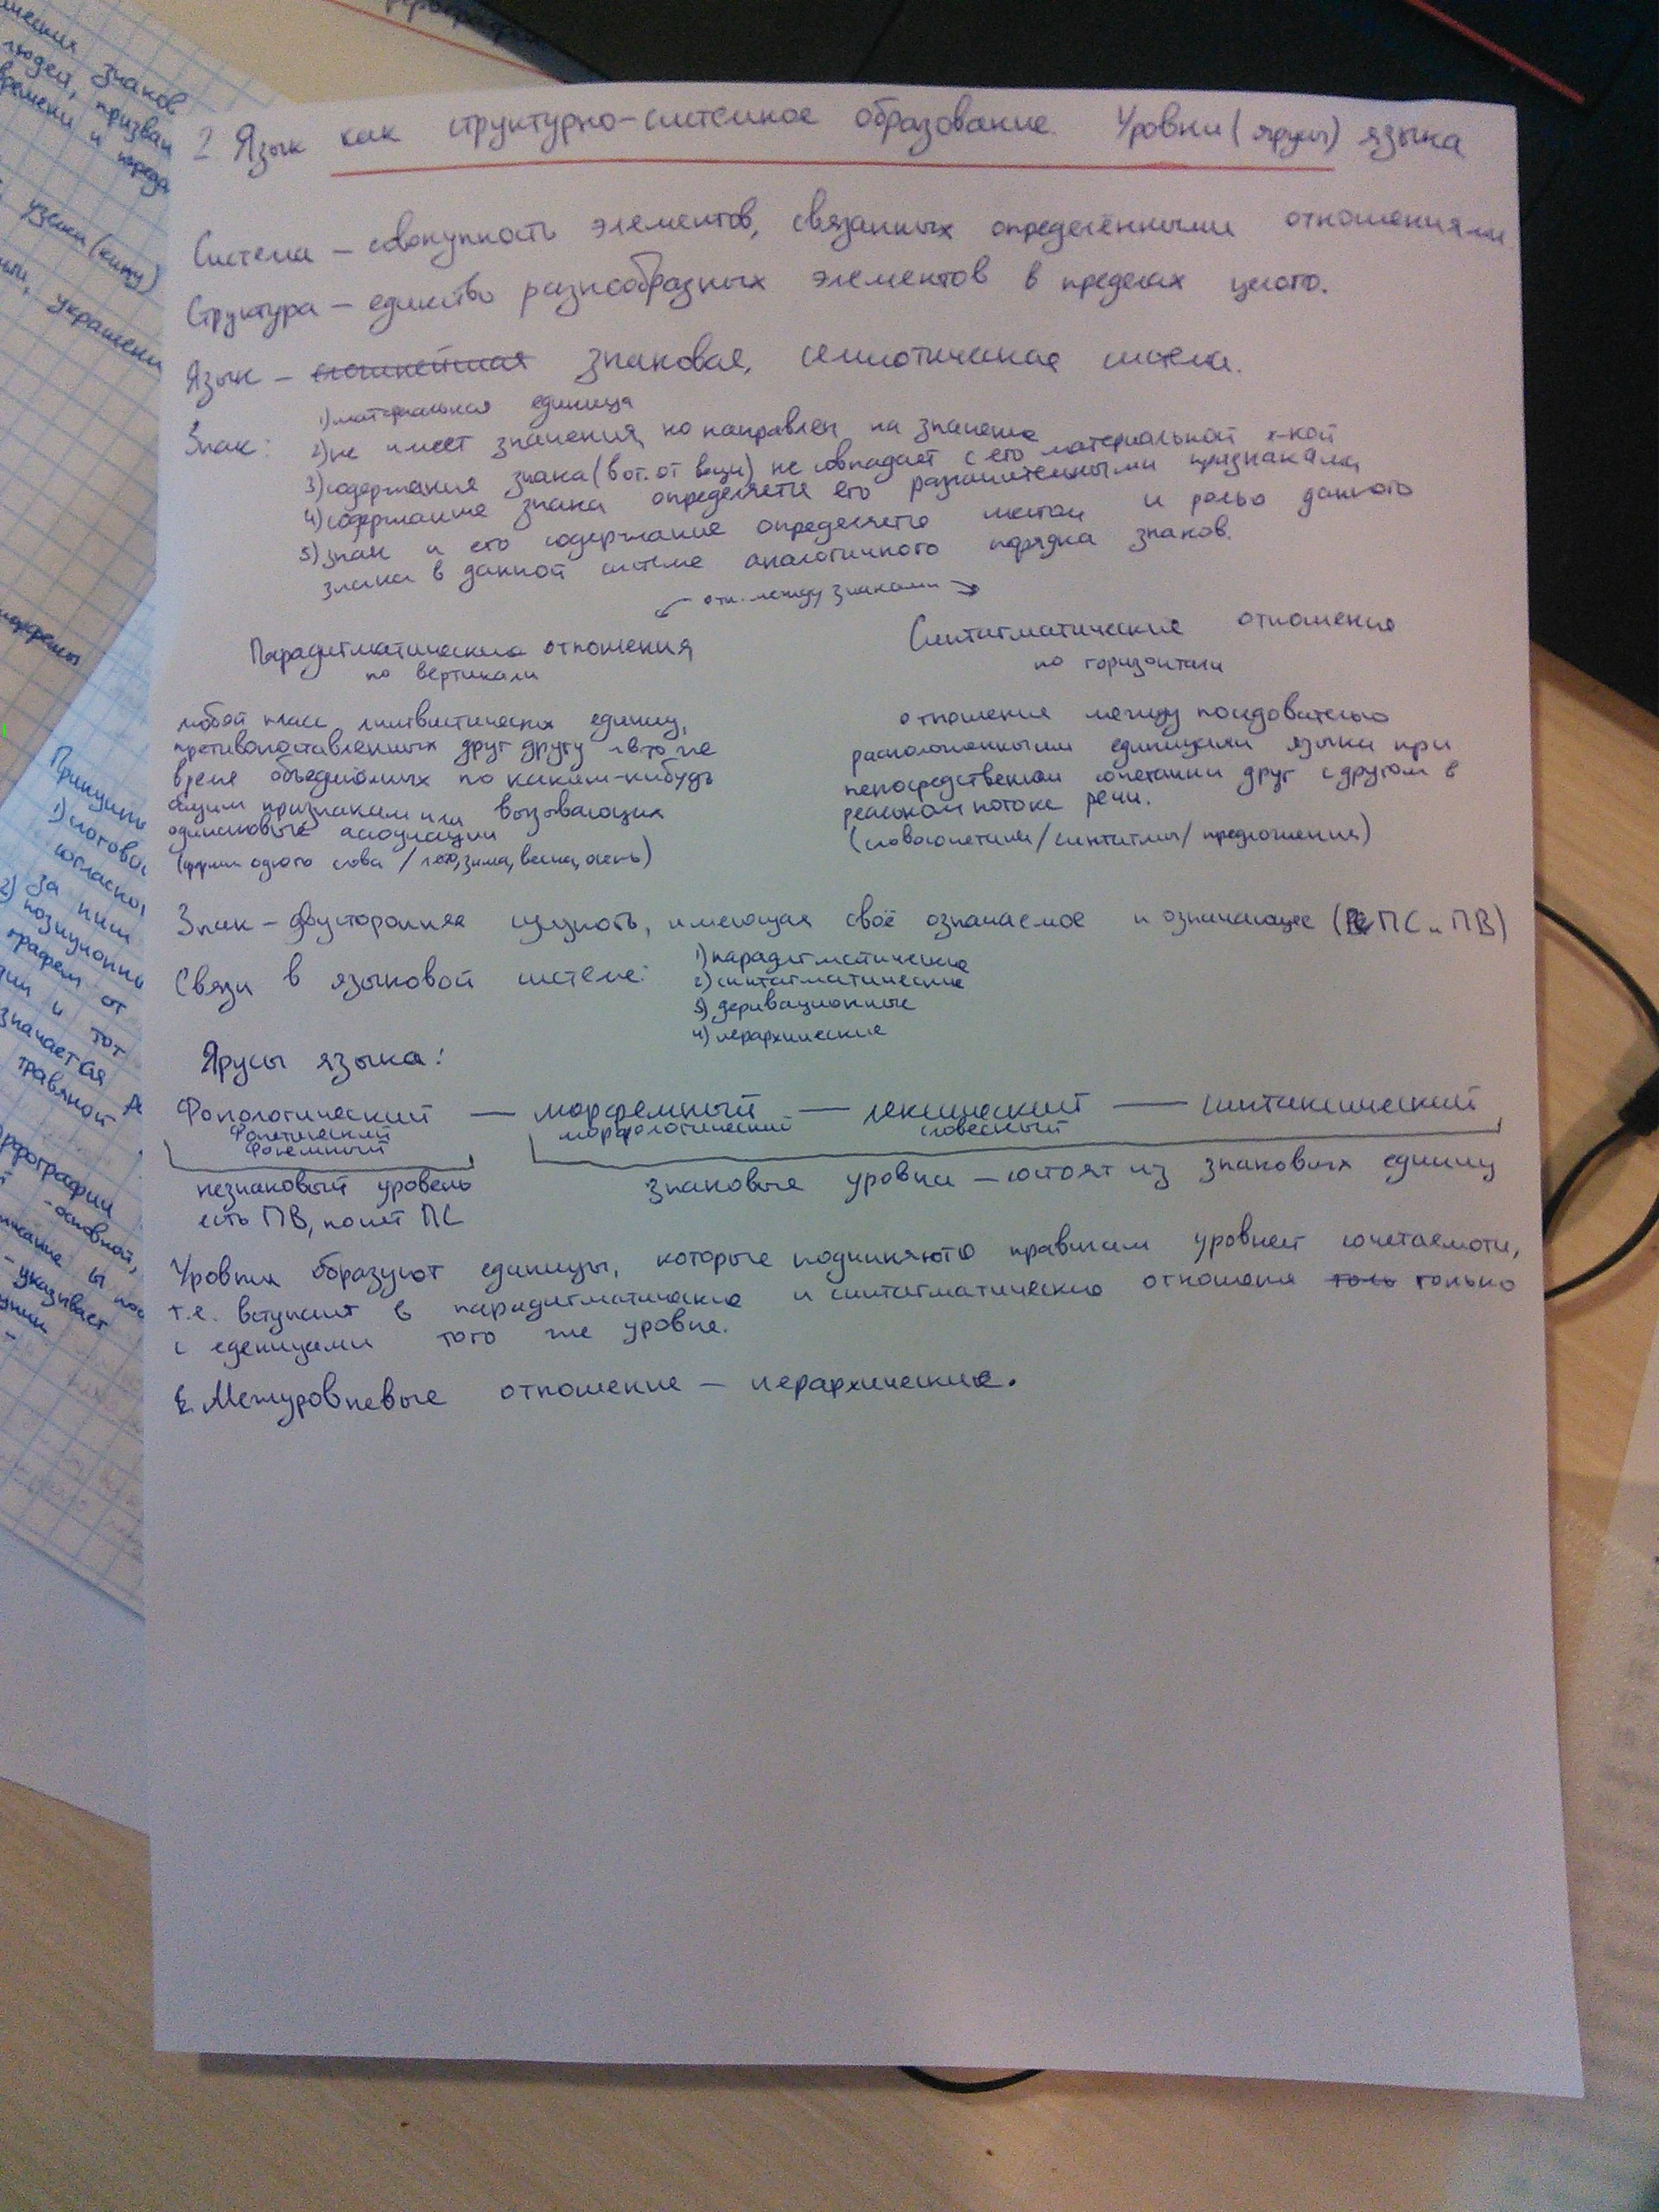 2 Язык как структурно-системное образование. Уровни (ярусы) языка
Система – совокупность элементов, связанных определёнными отношениями
Структура – единство разнообразных элементов в пределах целого.
Язык – сложнейшая знаковая, семиотическая система.
Знак:
1) материальная единица
2) не имеет значения, но направлен на значение
3) содержание знака (в от. от вещи) не совпадает с его материальной х-кой
4) содержание знака определяется его различительными признаками
5) знак и его содержание определяется местом и ролью данного
знака в данной системе аналогичного порядка знаков.
отн. между знаками
Парадигматические отношения
по вертикали
Синтагматические отношение
по горизонтали
любой класс лингвистических единиц,
противопоставленных друг другу и в то же
время объединённых по каким-нибудь
общим признакам или вызывающих
одинаковые ассоциации
(формы одного слова / лето, зима, весна, осень)
отношение между последовательно
расположенными единицами языка при
непосредственном сочетании друг с другом в
реальном потоке речи.
(словосочетания/синтагмы/предложения)
Знак – двусторонняя сущность, имеющая своё означаемое и означающее (ПС и ПВ)
Связи в языковой системе:
1) парадигматические
2) синтагматические
3) деривационные
4) иерархические
Ярусы языка:
Фонологический — морфемный — лексический — синтаксический
Фонетический морфологический словесный
Фонемный
незнаковый уровень
есть ПВ, но нет ПС
знаковые уровни – состоят из знаковых единиц
Уровни образуют единицы, которые подчиняются правилам уровней сочетаемоти,
т.е. вступают в парадигматические и синтагматические отношения толь только
с еденицами того же уровня.
Межуровневые отношение – иерархические.
знаков
людей, призван
времени и
узелки (кипу)
украшени
Принципы
согласно
за ним
2) позиционны
графем от
и тот
значается
травяной
орфографии
- основной,
- указывает